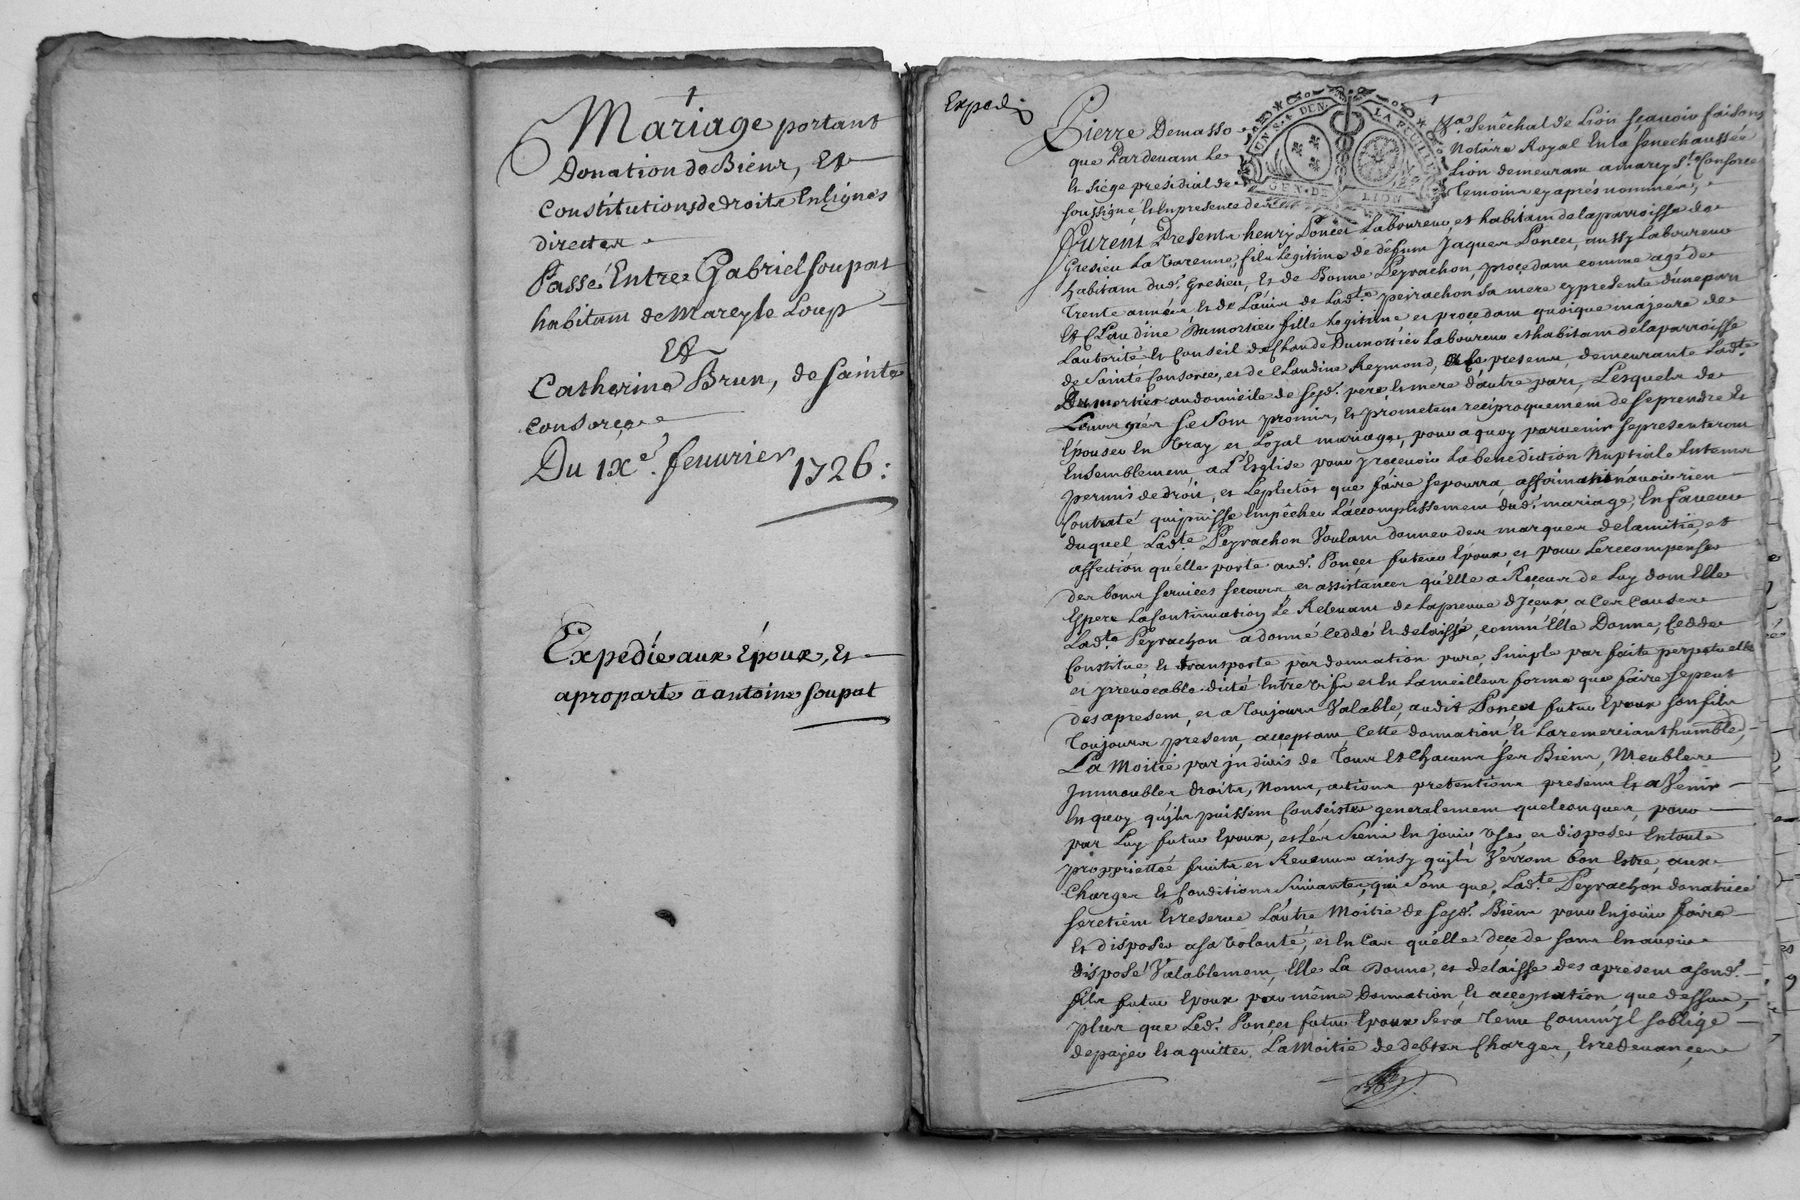 Mariage portant
Donation de Biens, Et
constitutions de droits En lignes
directes
Passé Entre Gabriel Soupat
habitant de Marcy le Loup
Et
Catherine Brun, de sainte
consorce
Du IXe. feuurier 1726:
Expedié aux Epoux, Et
aproparte a antoine Soupat
Exped.
Pierre Demasso
Senéchal de Lion sçauoir faisons
que Pardeuant Le
Notaire Royal En la Senechaussée
Et siége présidial de
Lion demeurant a marcy Ste Consorce
soussigné, Et En presence des
temoins cy aprés nommés,
GEN. DE LION
Furent Presents henry Poncet Laboureur, et habitant de la parroisse de
Gresieu La Varenne, fils Legitime de défunt Jaques Poncet, aussy Laboureur
habitant dud. Gresieu, Et de Bonne Peyrachon, procedant comme agé de
trente années Et de L'auis de Lad.te peirachon sa mere cy presente d'une part
Et Claudine Dumortier fille Legitime et procedant quoique majeure de
L'autorité Et Conseil de Claude Dumortier Laboureur et habitant de la parroisse
de Sainte Consorce, et de Claudine Reymond, presents demeurante Lad.te
Dumortier au domicile de sesd. pere Et mere d'autre part, Lesquels de
Leur gré se sont promis, Et prometent reciproquement de se prendre Et
Epouser En vray et Loyal mariage, pour a quoy paruenir se presenteront
Ensemblement a L'Eglise pour y receuoir La benediction Nuptiale En temps
permis de droit, et Le plutôt que faire se pourra affirmants n'auoir rien
Contraté qui puisse Empécher L'accomplissement dud. mariage, En faueur
duquel Lad.te Peyrachon Voulant donner des marques de L'amitié, et
affection qu'elle porte aud. Poncet futeur Epoux, et pour Le recompenser
des bons seruices secours et assistances qu'Elle a Reçeus de Luy dont Elle
Espere La Continuation Le Releuant de La preuue d'Iceux a Ces Causes
Lad.te Peyrachon a donné Ceddé Et delaissé, comm'Elle Donne, Cedde
Constitue Et transporte par donnation pure, simple parfaite perpetuelle
et Irreuocable dicte Entre vifs et En La meilleur forme que faire se peut
des a present, et a toujours Valable, audit Poncet futur Epoux son fils
toujours present, acceptant Cette donnation Et La remerciant humble.t
La Moitié par Indiuis de Tous Et Chacuns ses Biens, Meubles
Immeubles droits, Noms, actions pretentions presents Et a Venir
En quoy qu'ils puissent Consister generalement quelconques, pour
par Luy futur Epoux, et Les Siens En jouir vser et disposer En toute
proprietté fruits et Reuenus ainsy qu'ils Verront bon Estre, aux
Charges Et Conditions Suiuantes, qui Sont que Lad.te Peyrachon donatrice
se retient Et reserue L'autre Moitié de sesd. Biens pour En joüir faire
Et disposer a sa volonté, et En Cas qu'elle decede sans En auoir
disposé Valablement, Elle La Donne, et delaisse des a present a sond.
fils futur Epoux par même Donnation Et acceptation que dessus,
plus que Led. Poncet futur Epoux sera tenu Comm'jl soblige
de payer Et aquitter La Moitié de debtes Charges, Et redeuances